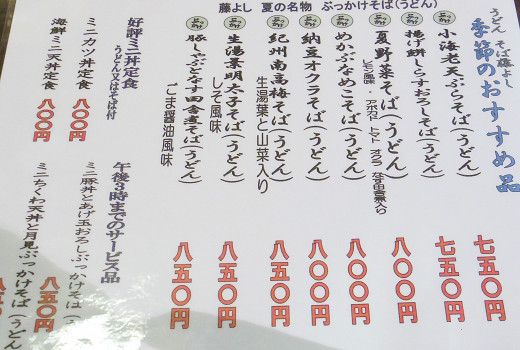 藤よし 夏の名物 ぶっかけそば(うどん)
うどん そば 藤よし
季節のおすすめ品
小海老天ぷらそば(うどん)
七五〇円
揚げ餅しらすおろしそば(うどん)
七五〇円
夏野菜そば(うどん)
レモン風味 アボカド トマト オクラ なす田舎煮入り
八〇〇円
めかぶなめこそば(うどん)
八〇〇円
納豆オクラそば(うどん)
八〇〇円
紀州南高梅そば(うどん)
生湯葉と山菜入り
八〇〇円
生湯葉明太子そば(うどん)
しそ風味
八五〇円
豚しゃぶとなす田舎煮そば(うどん)
ごま醤油風味
八五〇円
好評ミニ丼定食
うどん又はそば付
ミニカツ丼定食 八〇〇円
海鮮ミニ天丼定食 八〇〇円
午後3時までのサービス品
ミニ豚丼とあげ玉おろしぶっかけそば(う
八五〇円
ミニちくわ天丼と月見ぶっかけそば(うどん